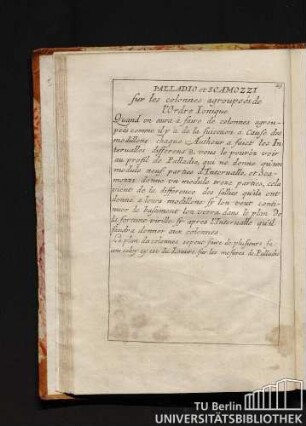 PALLADIO et SCAMOZZI
sur les colonnes agroupeés de
l'Ordre Ionique
Quand on aura à faire de colonnes agrou-
peés comme il y à de la sujection a Cause des
modillons chaque Autheur a faict les In
tervalles differens & vous le pouvés voir
au profil de Palladio, qui ne donne qu'un
module neuf parties d'Intervalle, et Sca-
mozzi donne un module treze parties, cela
vient de la difference des saillies qu'ils ont
donné à leurs modillons si l'on veut conti-
nuer le basiment l'on verra dans le plan De
la fortune virille & apres l'Intervalle qu'il
faudra donner aux colonnes.
Ce plan de colonnes se peut faire de plusieurs fa
cons celuy cy est du Louvre sur les mesures de Palladio
TU Berlin
UNIVERSITÄTSBIBLIOTHEK